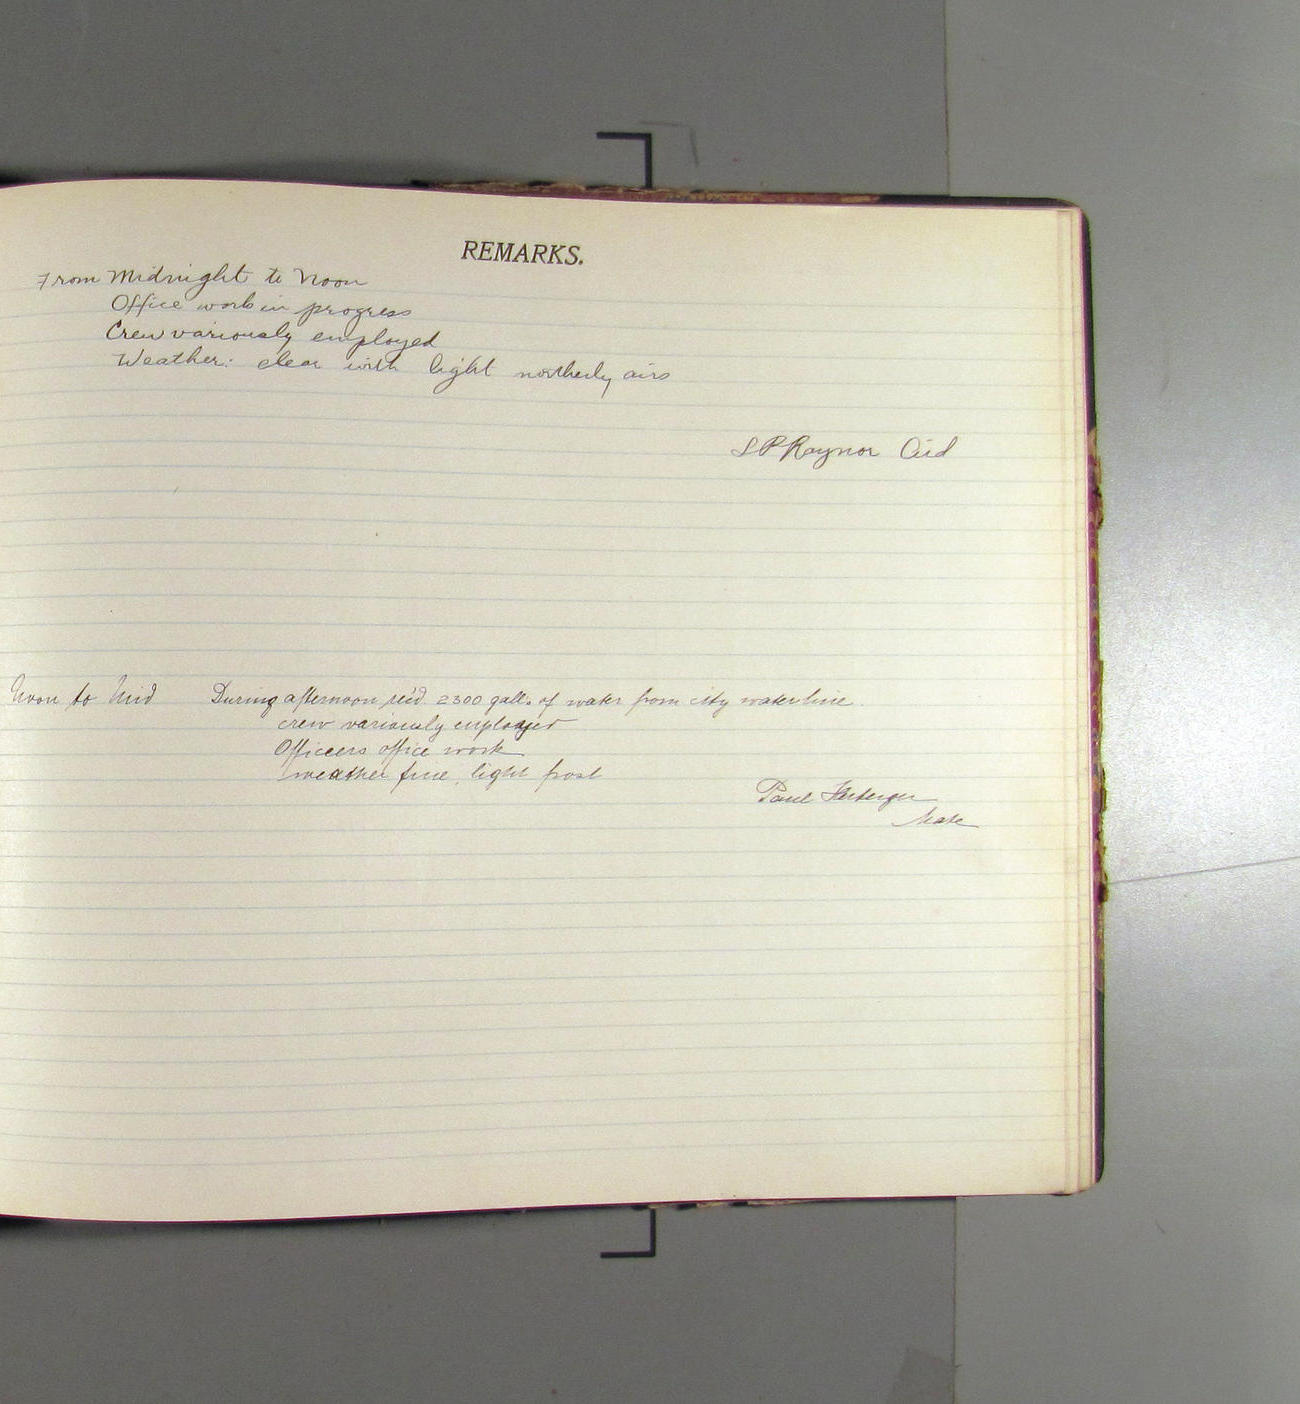 REMARKS.
From Midnight to Noon
Office work in progress
Crew variously employed
Weather: clear with light northerly airs
L P Raynor Aid
Noon to Mid During afternoon rec'd. 2300 galls of water from city waterline.
crew variously employed
Officers office work
weather fine, light frost
Paul
Mate